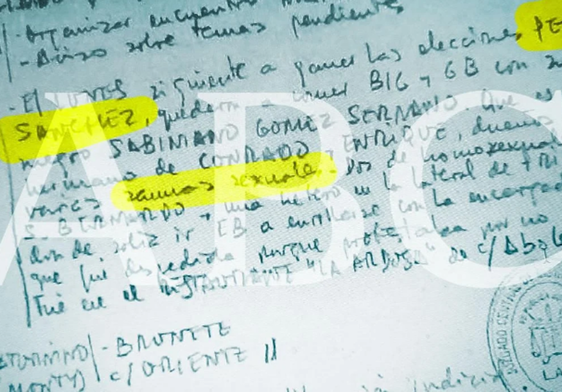 - Organizar encuentro
- Aviso sobre temas pendientes
- El LUNES siguiente a ganar las elecciones PE
SANCHEZ, quedaron a comer BIG y GB con
negro SABINIANO GOMEZ SERRANO. Que es
hermano de CONRADO y ENRIQUE, dueños
varias saunas sexuales. Dos de homosexual
S. BERNARDO y una hetero en la lateral de
donde solía ir EB a enrollarse con la encargada
que fue despedida porque protestaba por no
Fue en el RESTAURANTE "LA ARDOSA" de c/
- BRUNETE
c/ORIENTE 11
ABC